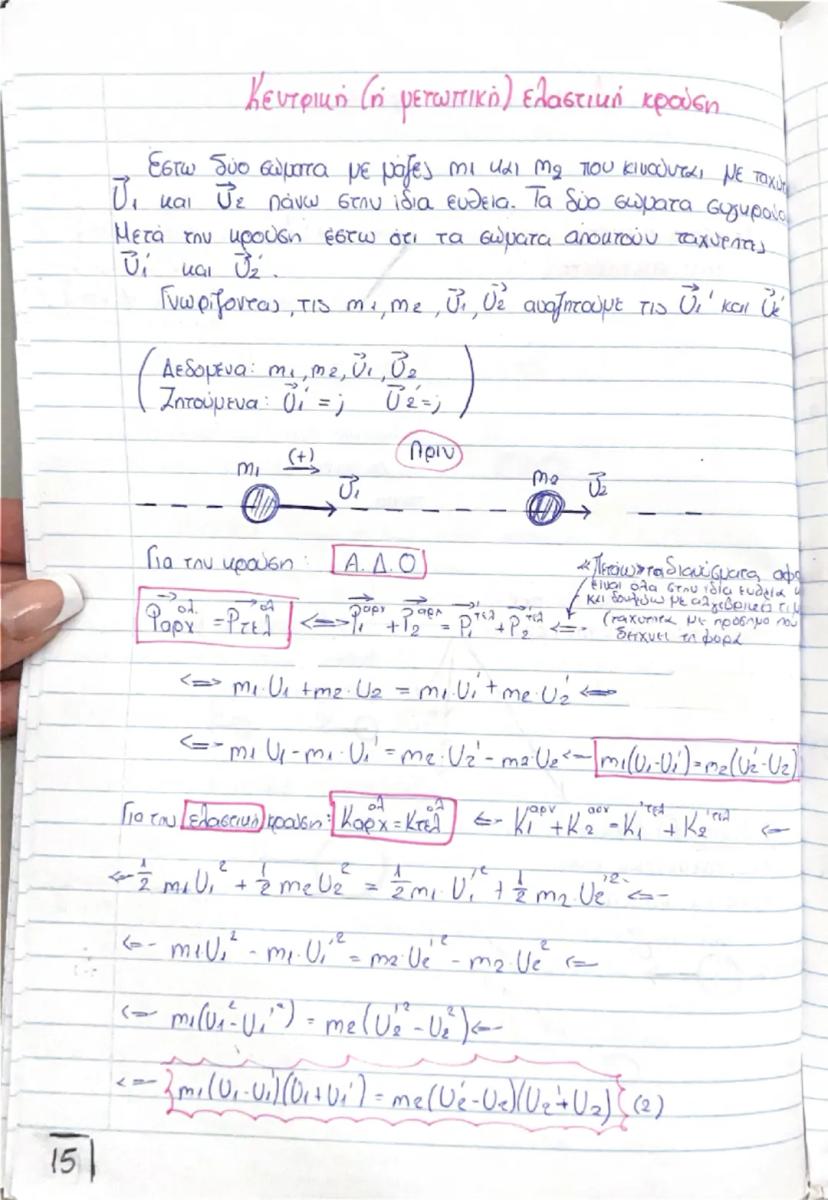 Κεντρική (ή μετωπική) ελαστική κρούση
Έστω δύο σώματα με μάζες m₁ και m₂ που κινούνται με ταχύτ
υ⃗₁ και υ⃗₂ πάνω στην ίδια ευθεία. Τα δύο σώματα συγκρούο
Μετά την κρούση έστω ότι τα σώματα αποκτούν ταχύτητες
υ⃗₁' και υ⃗₂'.
Γνωρίζοντας, τις m₁, m₂, υ⃗₁, υ⃗₂ αναζητούμε τις υ⃗₁' και υ⃗₂'
(Δεδομένα: m₁, m₂, υ⃗₁, υ⃗₂
Ζητούμενα: υ⃗₁' = ; υ⃗₂' = ;)
Πριν
m₁ (+) υ⃗₁ m₂ υ⃗₂
Για την κρούση: Α.Δ.Ο
«Πετάω» τα διανύσματα αφο
είναι όλα στην ίδια ευθεία κ
και δουλεύω με αλγεβρικές τιμ
(ταχύτητα με πρόσημο που
δείχνει τη φορά
P⃗αρχ^ολ = P⃗τελ^ολ <=> P⃗₁^αρχ + P⃗₂^αρχ = P⃗₁'^τελ + P⃗₂'^τελ <=>
<=> m₁·υ₁ + m₂·υ₂ = m₁·υ₁' + m₂·υ₂' <=>
<=> m₁υ₁ - m₁·υ₁' = m₂·υ₂' - m₂·υ₂ <=> m₁(υ₁-υ₁') = m₂(υ₂'-υ₂)
Για την ελαστική κρούση: Kαρχ^ολ = Kτελ^ολ <=> K₁^αρχ + K₂^αρχ = K₁'^τελ + K₂'^τελ <=>
<=> ½ m₁υ₁² + ½ m₂υ₂² = ½ m₁·υ₁'² + ½ m₂·υ₂'² <=>
<=> m₁υ₁² - m₁·υ₁'² = m₂·υ₂'² - m₂·υ₂² <=>
<=> m₁(υ₁²-υ₁'²) = m₂(υ₂'²-υ₂²) <=>
<=> m₁(υ₁-υ₁')(υ₁+υ₁') = m₂(υ₂'-υ₂)(υ₂'+υ₂) (2)
15